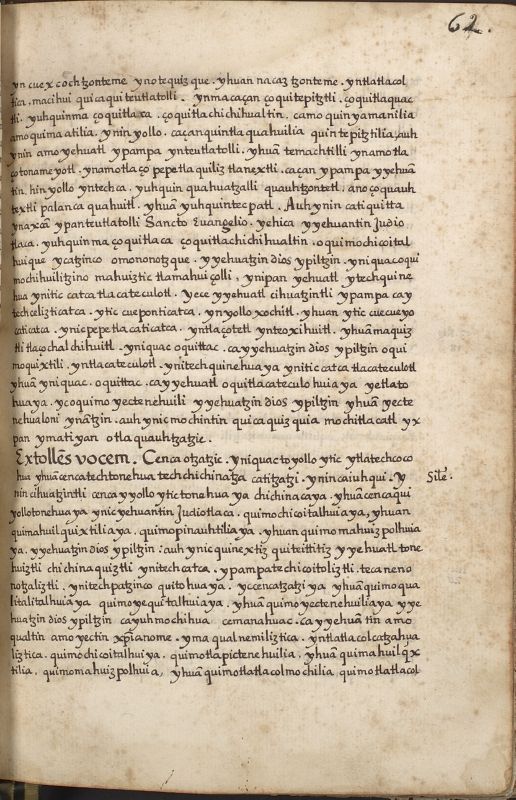 62.
yn cuexcochtzonteme ynotequizque. yhuan nacaztzonteme. yntlatlacol
tica, macihui quicaqui teutlatolli. ynmacaçan çoquitepitztli. çoquitlaquac
tli. yuhquinma çoquitlaxa. çoquitlachichihualtin, camo quinyamanilia
amo quimaatilia, ynin yollo. caçan quintlaquahuilia quintepitzilia, auh
ynin amo yehuatl ypampa ynteutlatolli. yhuā temachtilli ynamotla
çotonameyotl. ynamotlaço pepetlaquiliztlanextli. caçan ypampa yyehuā
tin, hin yollo yntechca, yuhquin quahuatzalli quauhtzontetl. ano çoquauh
textli palanca quahuitl. yhuā yuhquintecpatl. Auh ynin catiquitta
ynaxcā ypanteutlatolli Sancto Euangelio. yehica yyehuantin Judio
tlaca. yuhquin ma çoquitlaca çoquitlachichihualtin. oquimochicoital
huique ycatzinco omononotzque. yyehuatzin dios ypiltzin. yniquac oqui
mochihuilitzino mahuiztic tlamahuiçolli, ynipan yehuatl ytechquine
hua ynitic catca tlacateculotl. Yece yyehuatl cihuatzintli ypampa cay
techceliztica tca. ytic cueponticatca. ynyollo xochitl. yhuan ytic cuecueyo
caticatca. ynic pepetlacaticatca. yntlaçotetl ynteoxihuitl. yhuā maquiz
tli tlaçochalchihuitl. yniquac oquittac. ca yyehuatzin dios ypiltzin oqui
moquixtili. yntlacateculotl. ynitech quinehuaya ynitic catca tlacateculotl
yhuā yniquac. oquittac. ca yyehuatl oquitlacateculohuiaya yetlato
huaya. ycoquimoyectenehuili yyehuatzin dios ypiltzin yhuā yecte
nehualoni ynātzin. auh ynic mochintin quicaquizquia mochitlacatl yx
pan ymatiyan otlaquauhtzatzic.
Extollēs vocem. Cenca otzatzic. yniquac toyollo ytic ytlatechcoco
hua yhuā cencatechtonehua techchichinatza catitzatzi. ynin caiuhqui. y
Silē.
nin cihuatzintli cenca yyollo ytic tonehuaya chichinacaya. yhuā cencaqui
yollotonehuaya ynic yehuantin Judiotlaca. quimochicoitalhuiaya, yhuan
quimahuilquixtiliaya. quimopinauhtiliaya. yhuan quimomahuizpolhuia
ya. yyehuatzin dios ypiltzin: auh ynic quinextiz quiteittitiz yyehuatl tone
huiztli chichinaquiztli ynitech catca. ypampa techicoitoliztli. tecaneno
notzaliztli. ynitechpatzinco quitohuaya. yccencatzatzia ya yhuā quimoqua
litalitalhuiaya quimoyequitalhuiaya. yhuā quimoyectenehuiliaya yye
huatzin dios ypiltzin cayuhmochihua cemanahuac. ca yyehuātin amo
qualtin amo yectin xpianome. yma qualnemiliztica. yntlatlacolcatzahua
liztica. quimochicoitalhuiya. quimotlapictenehuilia. yhuā quimahuilqx
tilia. quimomahuizpolhuia, yhuā quimotlatlacolmochilia, quimotlatlacol